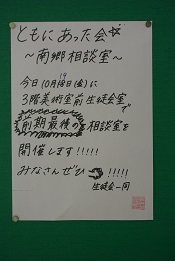 ともにあった会☆
～南郷相談室～
今日10月19日(金)に
3階美術室前生徒会室で
前期最後の相談室を
開催します!!!!!
みなさんぜひ!!!!!
生徒会一同